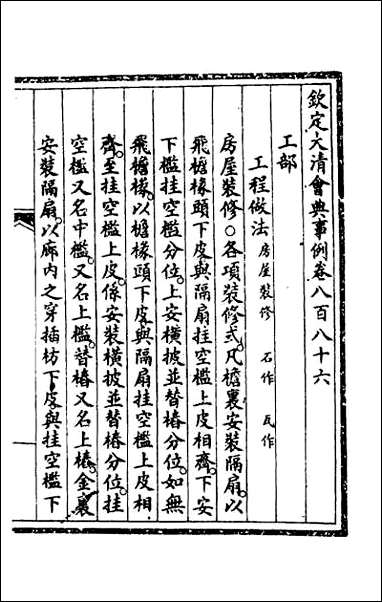 欽定大清會典事例卷八百八十六
工部
工程做法 房屋裝修 石作 瓦作
房屋裝修○各項裝修式。凡檐裏安裝隔扇。以
飛檐椽頭下皮與隔扇挂空檻上皮相齊。下安
下檻挂空檻分位。上安橫披並替樁分位。如無
飛檐椽。以檐椽頭下皮與隔扇挂空檻上皮相
齊。至挂空檻上皮。係安裝橫披並替樁分位。挂
空檻又名中檻。又名上檻。替樁又名上樁。金裏
安裝隔扇。以廊內之穿插枋下皮與挂空檻下